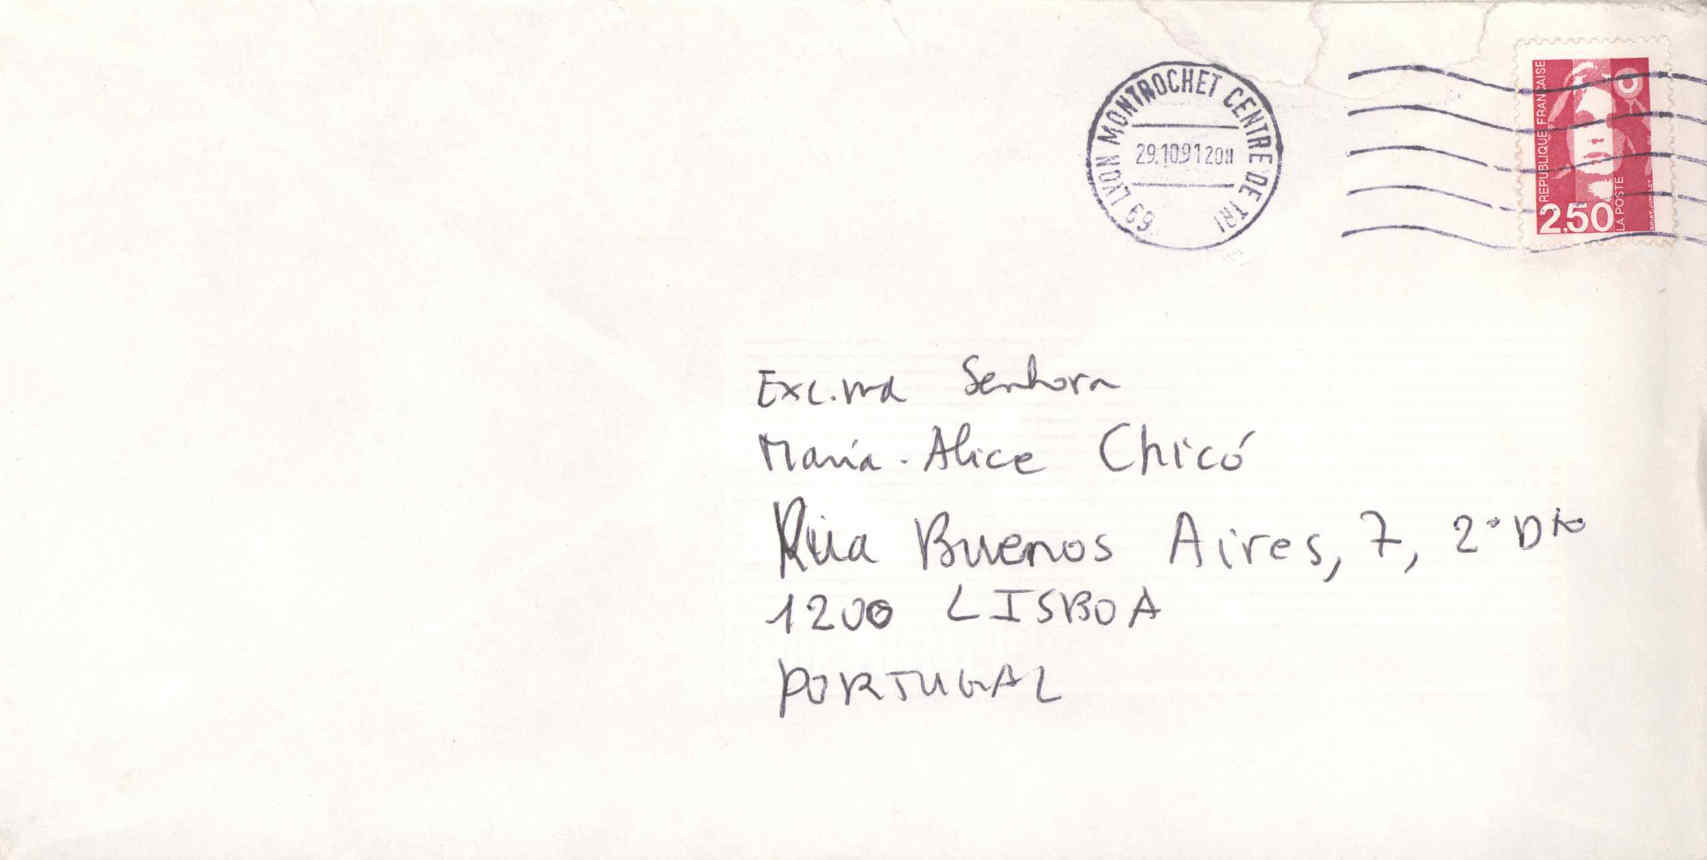 LYON MONTROCHET CENTRE DE TRI
69
29.10.91 20H
REPUBLIQUE FRANÇAISE
2.50
LA POSTE
Exc.ma Senhora
Maria-Alice Chicó
Rua Buenos Aires, 7, 2º Dto
1200 LISBOA
PORTUGAL